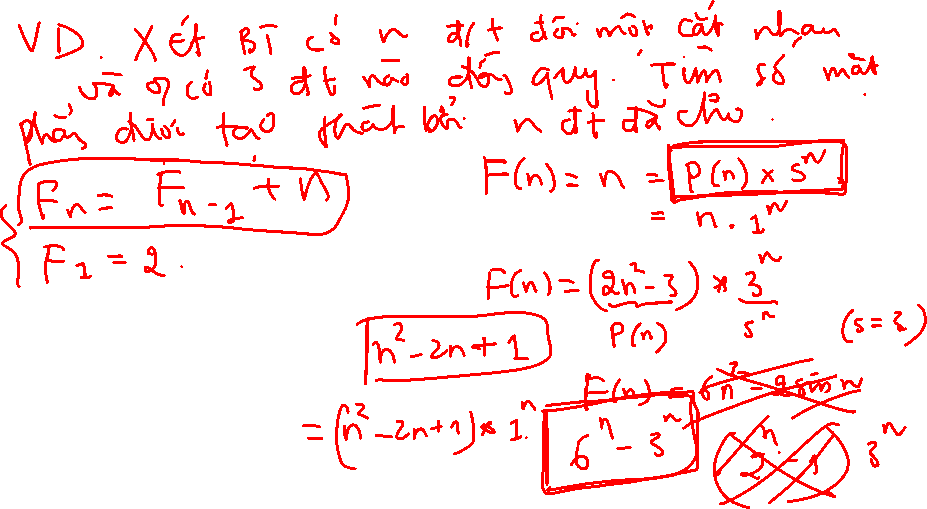 VD. Xét BT có n đ/t đôi một cắt nhau
và ko có 3 đt nào đồng quy. Tìm số mặt
phẳng được tạo thành bởi n đt đã cho.
F(n) = n = P(n) × s^n
= n . 1^n
F_n = F_{n-1} + n
F_1 = 2.
F(n) = (2n^2 - 3) * 3^n
P(n) s^n (s=3)
n^2 - 2n + 1
F(n) = 6n^2 -
= (n^2 - 2n + 1) * 1^n.
6^n - 3^n
3^n